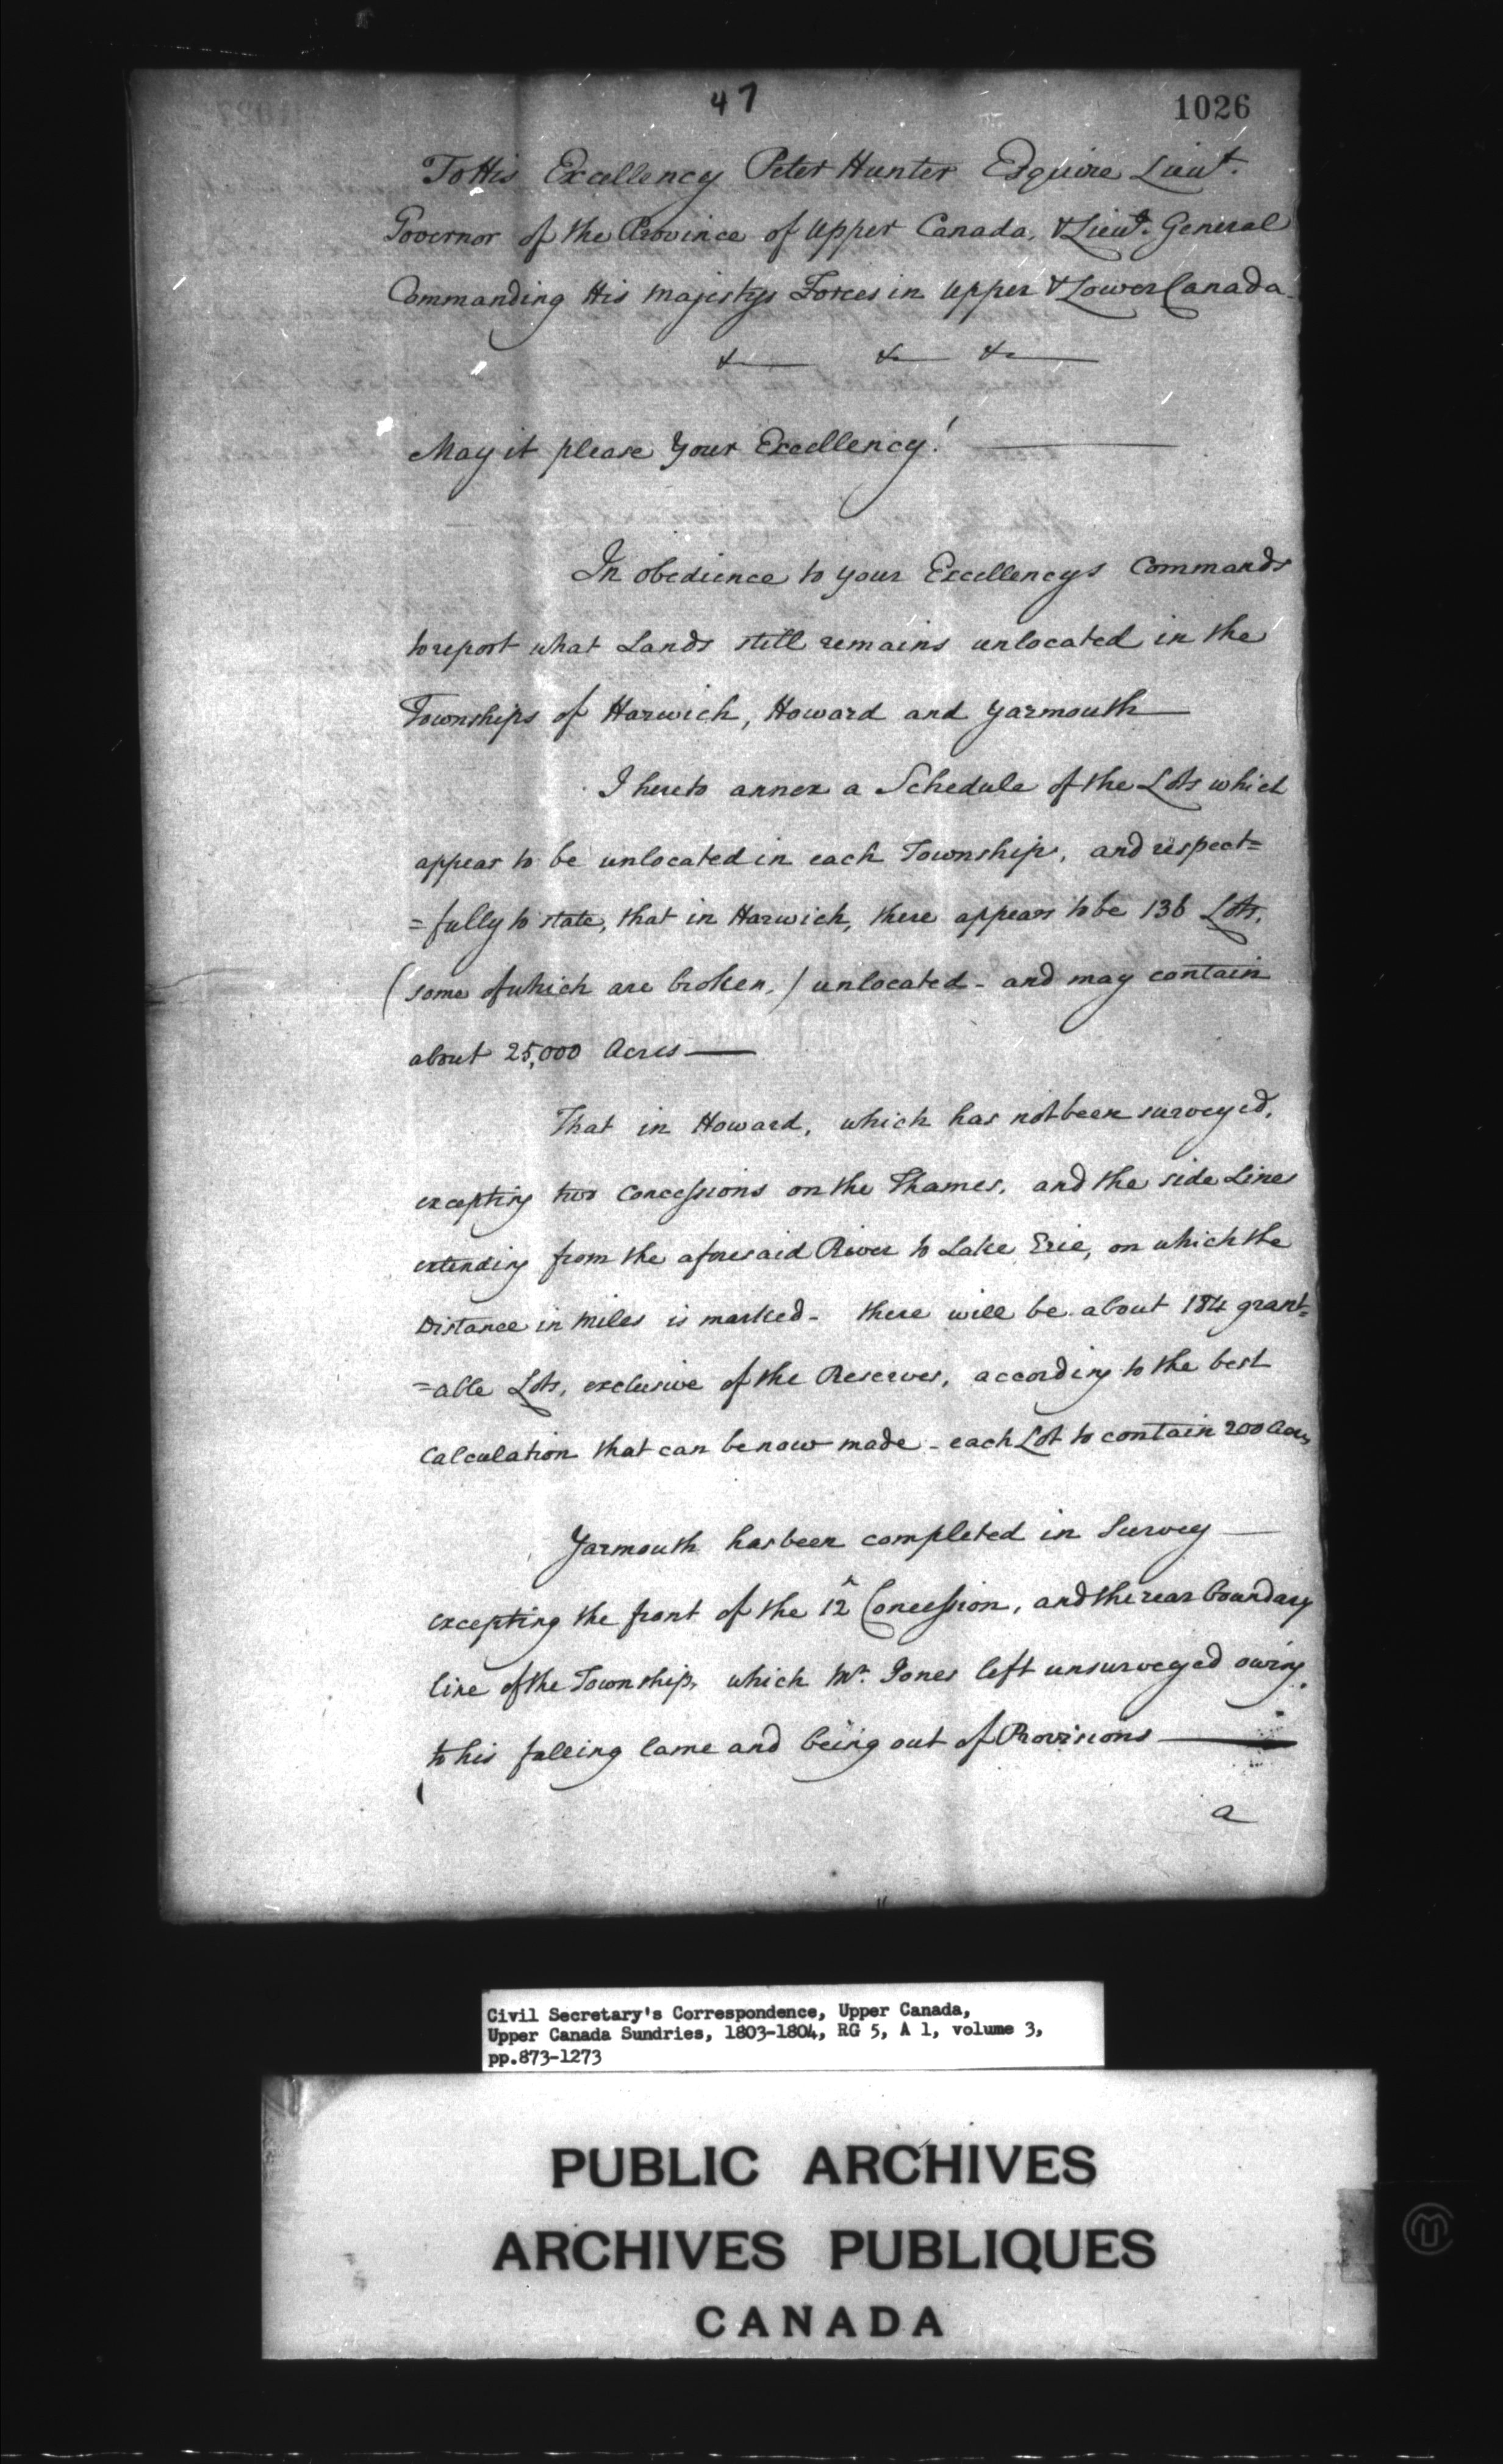 47
1026
To His Excellency Peter Hunter Esquire Lieut.
Governor of the Province of Upper Canada, & Lieut. General
Commanding His Majestys Forces in Upper & Lower Canada
& & &
May it please Your Excellency!
In obedience to your Excellencys Commands
to report what Lands still remains unlocated in the
Townships of Harwich, Howard and Yarmouth
I hereto annex a Schedule of the Lots which
appear to be unlocated in each Township, and respect=
=fully to state, that in Harwich, there appears to be 136 Lots,
(some of which are broken,) unlocated - and may contain
about 25,000 Acres
That in Howard, which has not been surveyed,
excepting two Concessions on the Thames, and the side Lines
extending from the aforesaid River to Lake Erie, on which the
Distance in Miles is marked - there will be about 184 grant=
=able Lots, exclusive of the Reserves, according to the best
Calculation that can be now made - each Lot to contain 200 Acres
Yarmouth has been completed in Survey
excepting the front of the 12 Concession, and the rear boundary
line of the Township, which Mr. Jones left unsurveyed owing
to his falling lame and being out of Provisions
a
Civil Secretary's Correspondence, Upper Canada,
Upper Canada Sundries, 1803-1804, RG 5, A 1, volume 3,
pp.873-1273
PUBLIC ARCHIVES
ARCHIVES PUBLIQUES
CANADA